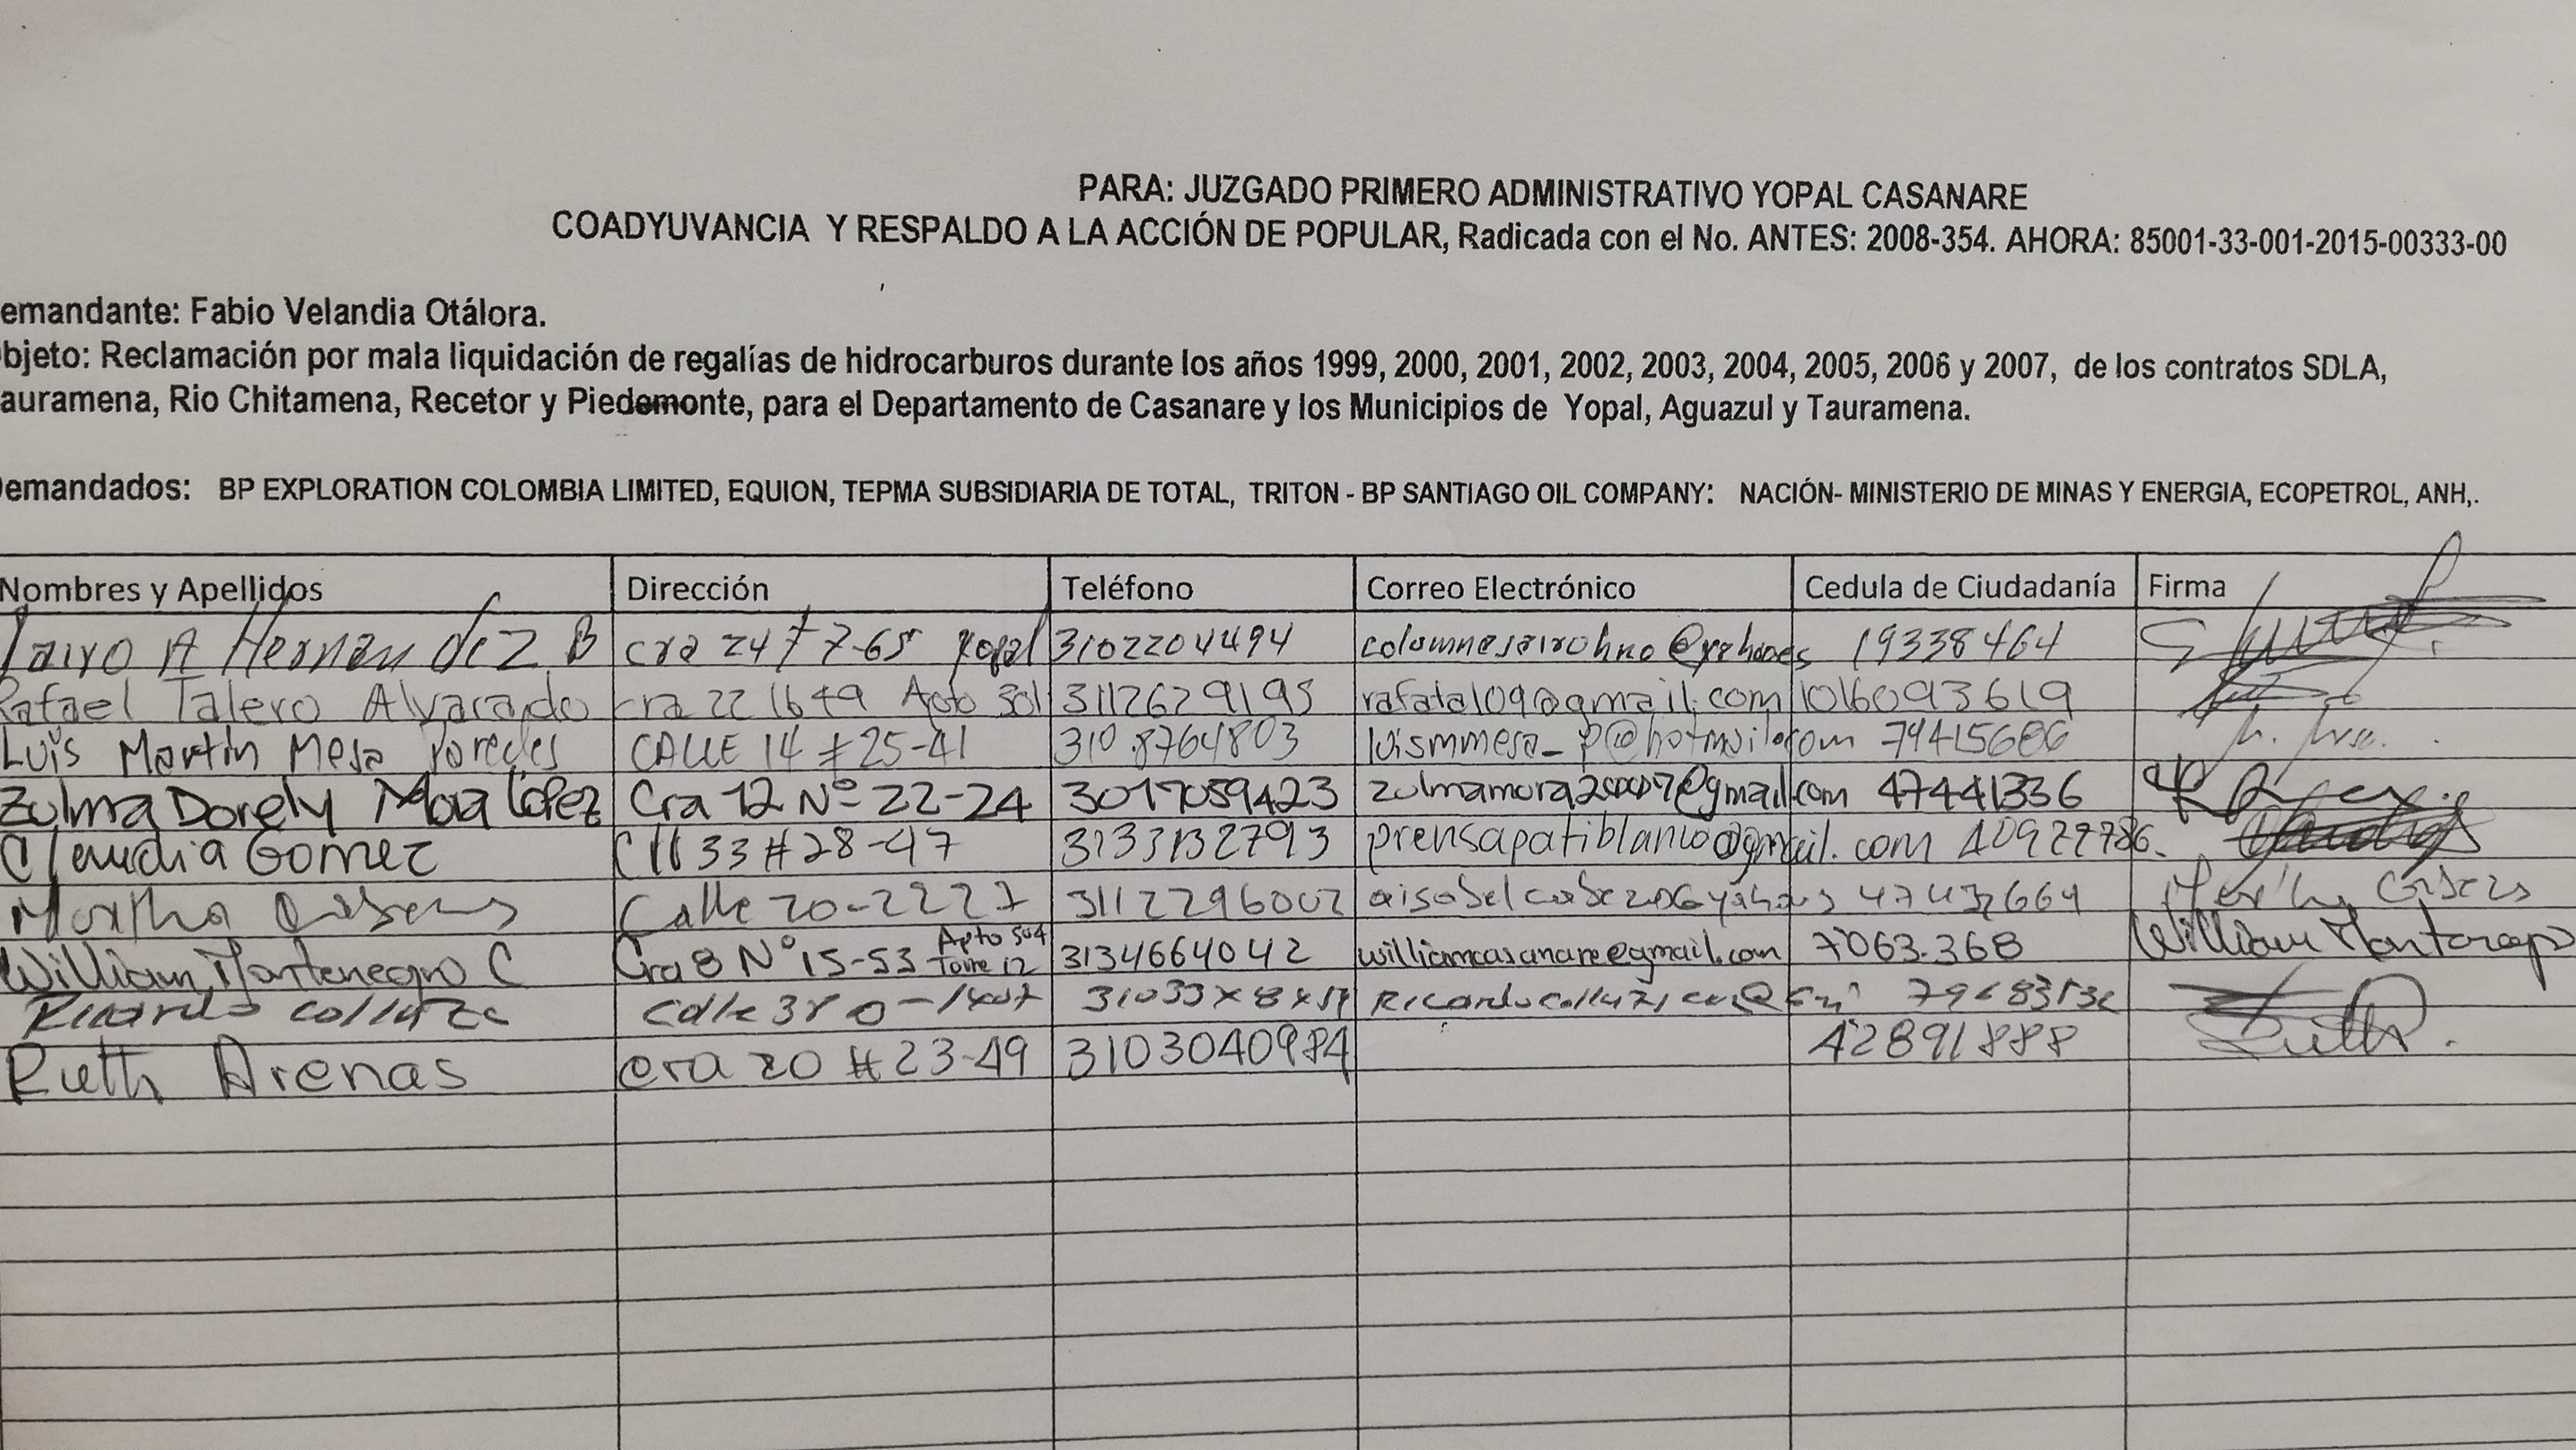 PARA: JUZGADO PRIMERO ADMINISTRATIVO YOPAL CASANARE
COADYUVANCIA Y RESPALDO A LA ACCIÓN DE POPULAR, Radicada con el No. ANTES: 2008-354. AHORA: 85001-33-001-2015-00333-00
emandante: Fabio Velandia Otálora.
bjeto: Reclamación por mala liquidación de regalías de hidrocarburos durante los años 1999, 2000, 2001, 2002, 2003, 2004, 2005, 2006 y 2007, de los contratos SDLA,
auramena, Rio Chitamena, Recetor y Piedemonte, para el Departamento de Casanare y los Municipios de Yopal, Aguazul y Tauramena.
emandados: BP EXPLORATION COLOMBIA LIMITED, EQUION, TEPMA SUBSIDIARIA DE TOTAL, TRITON - BP SANTIAGO OIL COMPANY: NACIÓN- MINISTERIO DE MINAS Y ENERGIA, ECOPETROL, ANH,.
Nombres y Apellidos Dirección Teléfono Correo Electrónico Cedula de Ciudadanía Firma
Jairo A Hernandez B cra 24 7-65 Yopal 3102204494 19338464
Rafael Talero Alvarado cra 22 16 49 Apto 301 3112629195 rafatal09@gmail.com 1016093619
Luis Martin Mesa Paredes CALLE 14 # 25-41 310.8764803 luismmesa_p@hotmail.com 79415686
Zulma Dorely Mora López Cra 12 Nº 22-24 3017059423 47441336
Claudia Gomez Cll 33 #28-47 3133132793 prensapatiblanco@gmail.com 40927786
Martha Calle 20-2227 3112296002
William Montenegro C Cra 8 Nº 15-53 Apto 504 Torre 12 3134664042 williamcasanare@gmail.com 7063.368 William Montenegro
Ricardo Collazo Calle
Ruth Arenas cra 20 #23-49 3103040984 42891888 Ruth